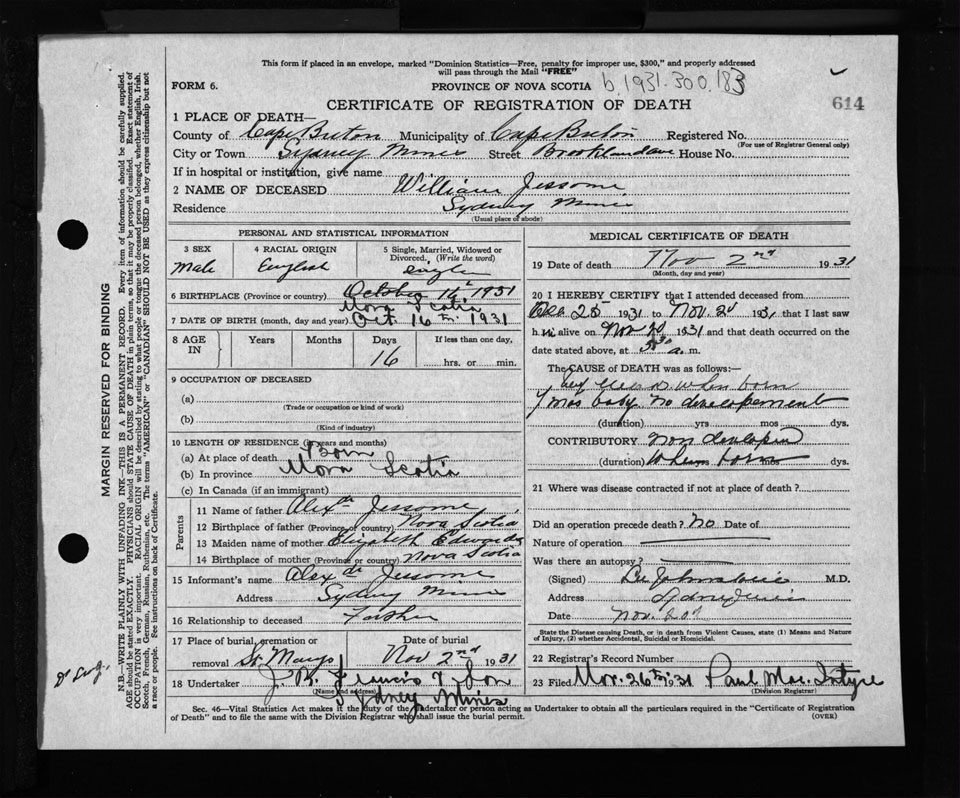 This form if placed in an envelope, marked "Dominion Statistics—Free, penalty for improper use, $300," and properly addressed
will pass through the Mail "FREE"
FORM 6.
PROVINCE OF NOVA SCOTIA b. 1931.300.183
CERTIFICATE OF REGISTRATION OF DEATH
614
1 PLACE OF DEATH—
County of Cape Breton Municipality of Cape Breton Registered No.
(For use of Registrar General only)
City or Town Sydney Mines Street House No.
If in hospital or institution, give name
2 NAME OF DECEASED William Jessome
Residence Sydney Mines
(Usual place of abode)
PERSONAL AND STATISTICAL INFORMATION
3 SEX 4 RACIAL ORIGIN 5 Single, Married, Widowed or Divorced. (Write the word)
Male English single
6 BIRTHPLACE (Province or country) October 16th 1931
Nova Scotia
7 DATE OF BIRTH (month, day and year) Oct. 16th 1931
8 AGE IN Years Months Days If less than one day,
16 hrs. or min.
9 OCCUPATION OF DECEASED
(a)
(Trade or occupation or kind of work)
(b)
(Kind of industry)
10 LENGTH OF RESIDENCE (in years and months)
(a) At place of death Born
(b) In province Nova Scotia
(c) In Canada (if an immigrant)
Parents
11 Name of father Alexdr Jessome
12 Birthplace of father (Province or country) Nova Scotia
13 Maiden name of mother Elizabeth Edwards
14 Birthplace of mother (Province or country) Nova Scotia
15 Informant's name Alexdr Jessome
Address Sydney Mines
16 Relationship to deceased Father
17 Place of burial, cremation or removal St. Marys Date of burial Nov 2nd 1931
18 Undertaker J. R. Francis & Son
(Name and address)
Sydney Mines
MEDICAL CERTIFICATE OF DEATH
19 Date of death Nov 2nd 1931
(Month, day and year)
20 I HEREBY CERTIFY that I attended deceased from
1931 to Nov. 1931 that I last saw
h alive on Nov 1931 and that death occurred on the
date stated above, at a. m.
The CAUSE of DEATH was as follows:
when born
mos baby. no developement
(duration) yrs. mos. dys.
CONTRIBUTORY non
(duration) When born mos. dys.
21 Where was disease contracted if not at place of death?
Did an operation precede death? No Date of
Nature of operation
Was there an autopsy?
(Signed) M.D.
Address Sydney Mines
Date Nov.
State the Disease causing Death, or in death from Violent Causes, state (1) Means and Nature
of Injury, (2) whether Accidental, Suicidal or Homicidal.
22 Registrar's Record Number
23 Filed Nov. 26th 1931 Paul Mac Intyre
(Division Registrar)
Sec. 46—Vital Statistics Act makes it the duty of the undertaker or person acting as Undertaker to obtain all the particulars required in the "Certificate of Registration
of Death" and to file the same with the Division Registrar who shall issue the burial permit.
(OVER)
MARGIN RESERVED FOR BINDING
N.B.—WRITE PLAINLY WITH UNFADING INK—THIS IS A PERMANENT RECORD. Every item of information should be carefully supplied.
AGE should be stated EXACTLY. PHYSICIANS should STATE CAUSE OF DEATH in plain terms, so that it may be properly classified. Exact statement of
OCCUPATION is very important. RACIAL ORIGIN will be described by stating to what people or tongue the deceased person belonged, whether English, Irish,
Scotch, French, German, Russian, Ruthenian, etc. The terms "AMERICAN" or "CANADIAN" SHOULD NOT BE USED as they express citizenship but not
a race or people. See instructions on back of Certificate.